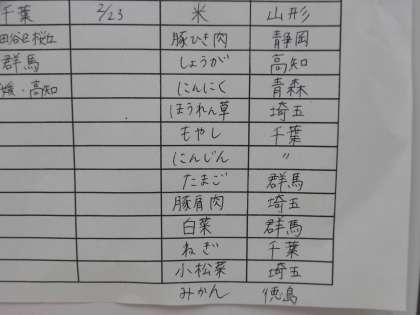 千葉 2/23 米 山形
田谷区桜丘 豚ひき肉 静岡
群馬 しょうが 高知
媛・高知 にんにく 青森
ほうれん草 埼玉
もやし 千葉
にんじん 〃
たまご 群馬
豚肩肉 埼玉
白菜 群馬
ねぎ 千葉
小松菜 埼玉
みかん 徳島